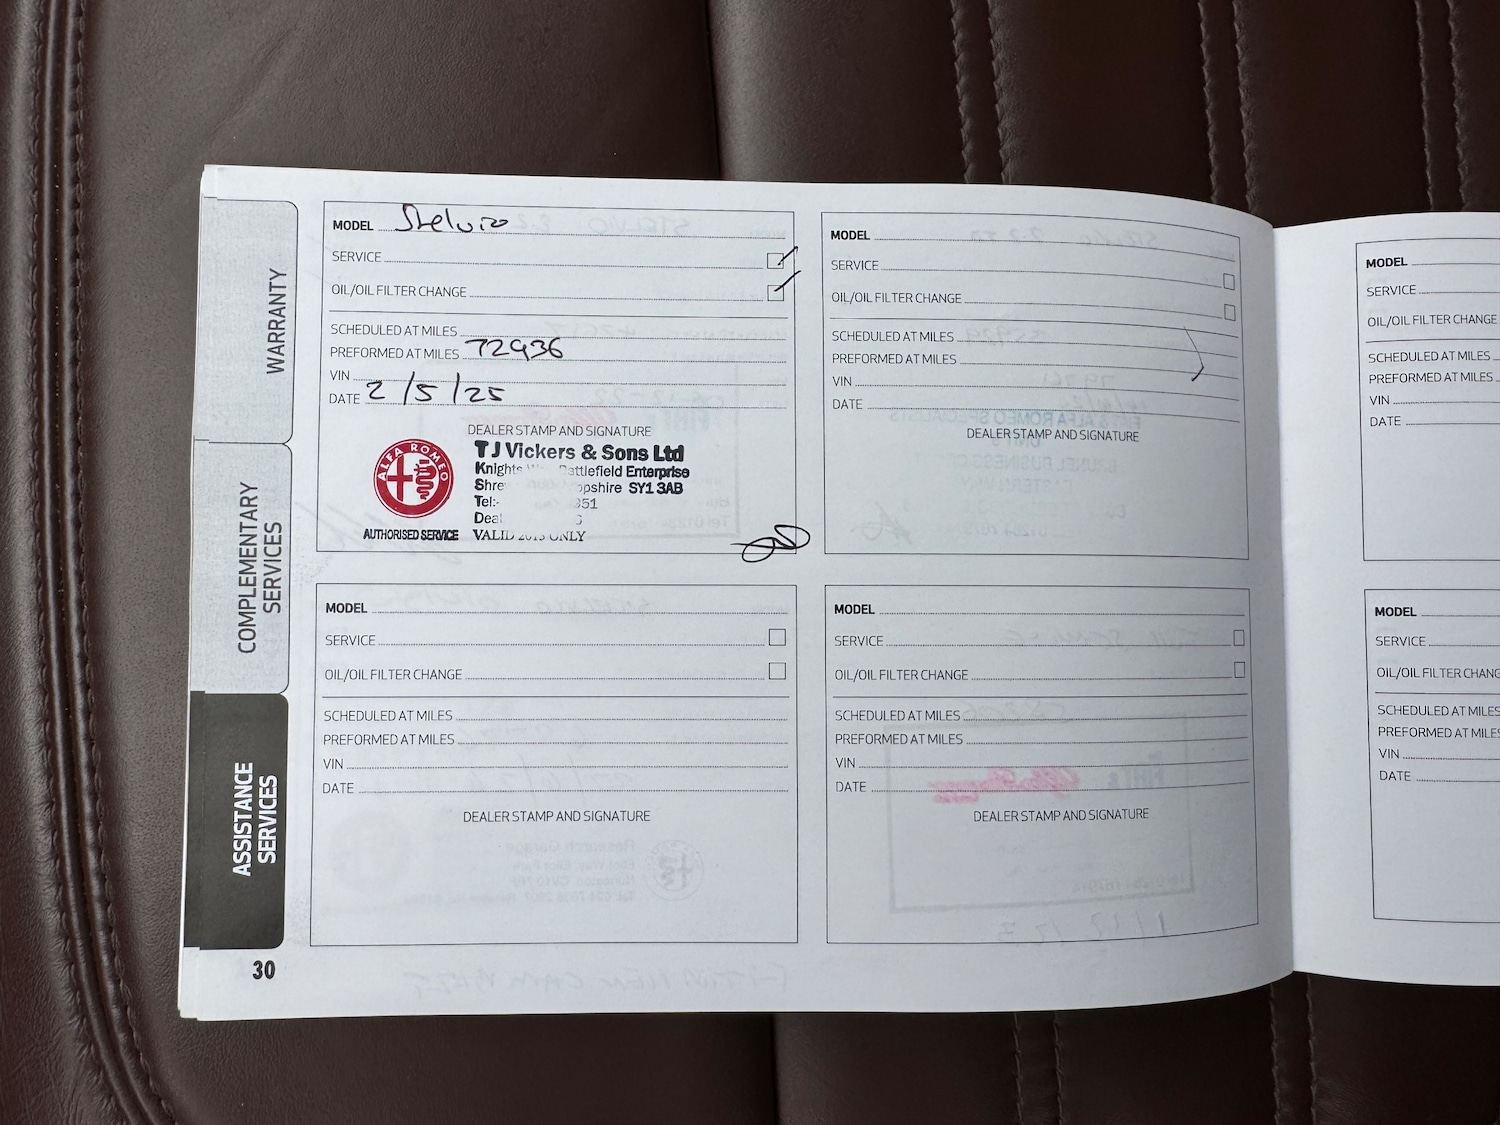 WARRANTY
COMPLEMENTARY
SERVICES
ASSISTANCE
SERVICES
MODEL Stelvio
SERVICE
OIL/OIL FILTER CHANGE
SCHEDULED AT MILES
PREFORMED AT MILES 72936
VIN
DATE 2/5/25
DEALER STAMP AND SIGNATURE
ALFA ROMEO
AUTHORISED SERVICE
TJ Vickers & Sons Ltd
Knights Battlefield Enterprise
Shre opshire SY1 3AB
Tel:- 351
Deal
VALID 2015 ONLY
MODEL
SERVICE
OIL/OIL FILTER CHANGE
SCHEDULED AT MILES
PREFORMED AT MILES
VIN
DATE
DEALER STAMP AND SIGNATURE
MODEL
SERVICE
OIL/OIL FILTER CHANGE
SCHEDULED AT MILES
PREFORMED AT MILES
VIN
DATE
DEALER STAMP AND SIGNATURE
MODEL
SERVICE
OIL/OIL FILTER CHANGE
SCHEDULED AT MILES
PREFORMED AT MILES
VIN
DATE
DEALER STAMP AND SIGNATURE
30
MODEL
SERVICE
OIL/OIL FILTER CHANGE
SCHEDULED AT MILES
PREFORMED AT MILES
VIN
DATE
MODEL
SERVICE
OIL/OIL FILTER CHANG
SCHEDULED AT MILES
PREFORMED AT MILES
VIN
DATE